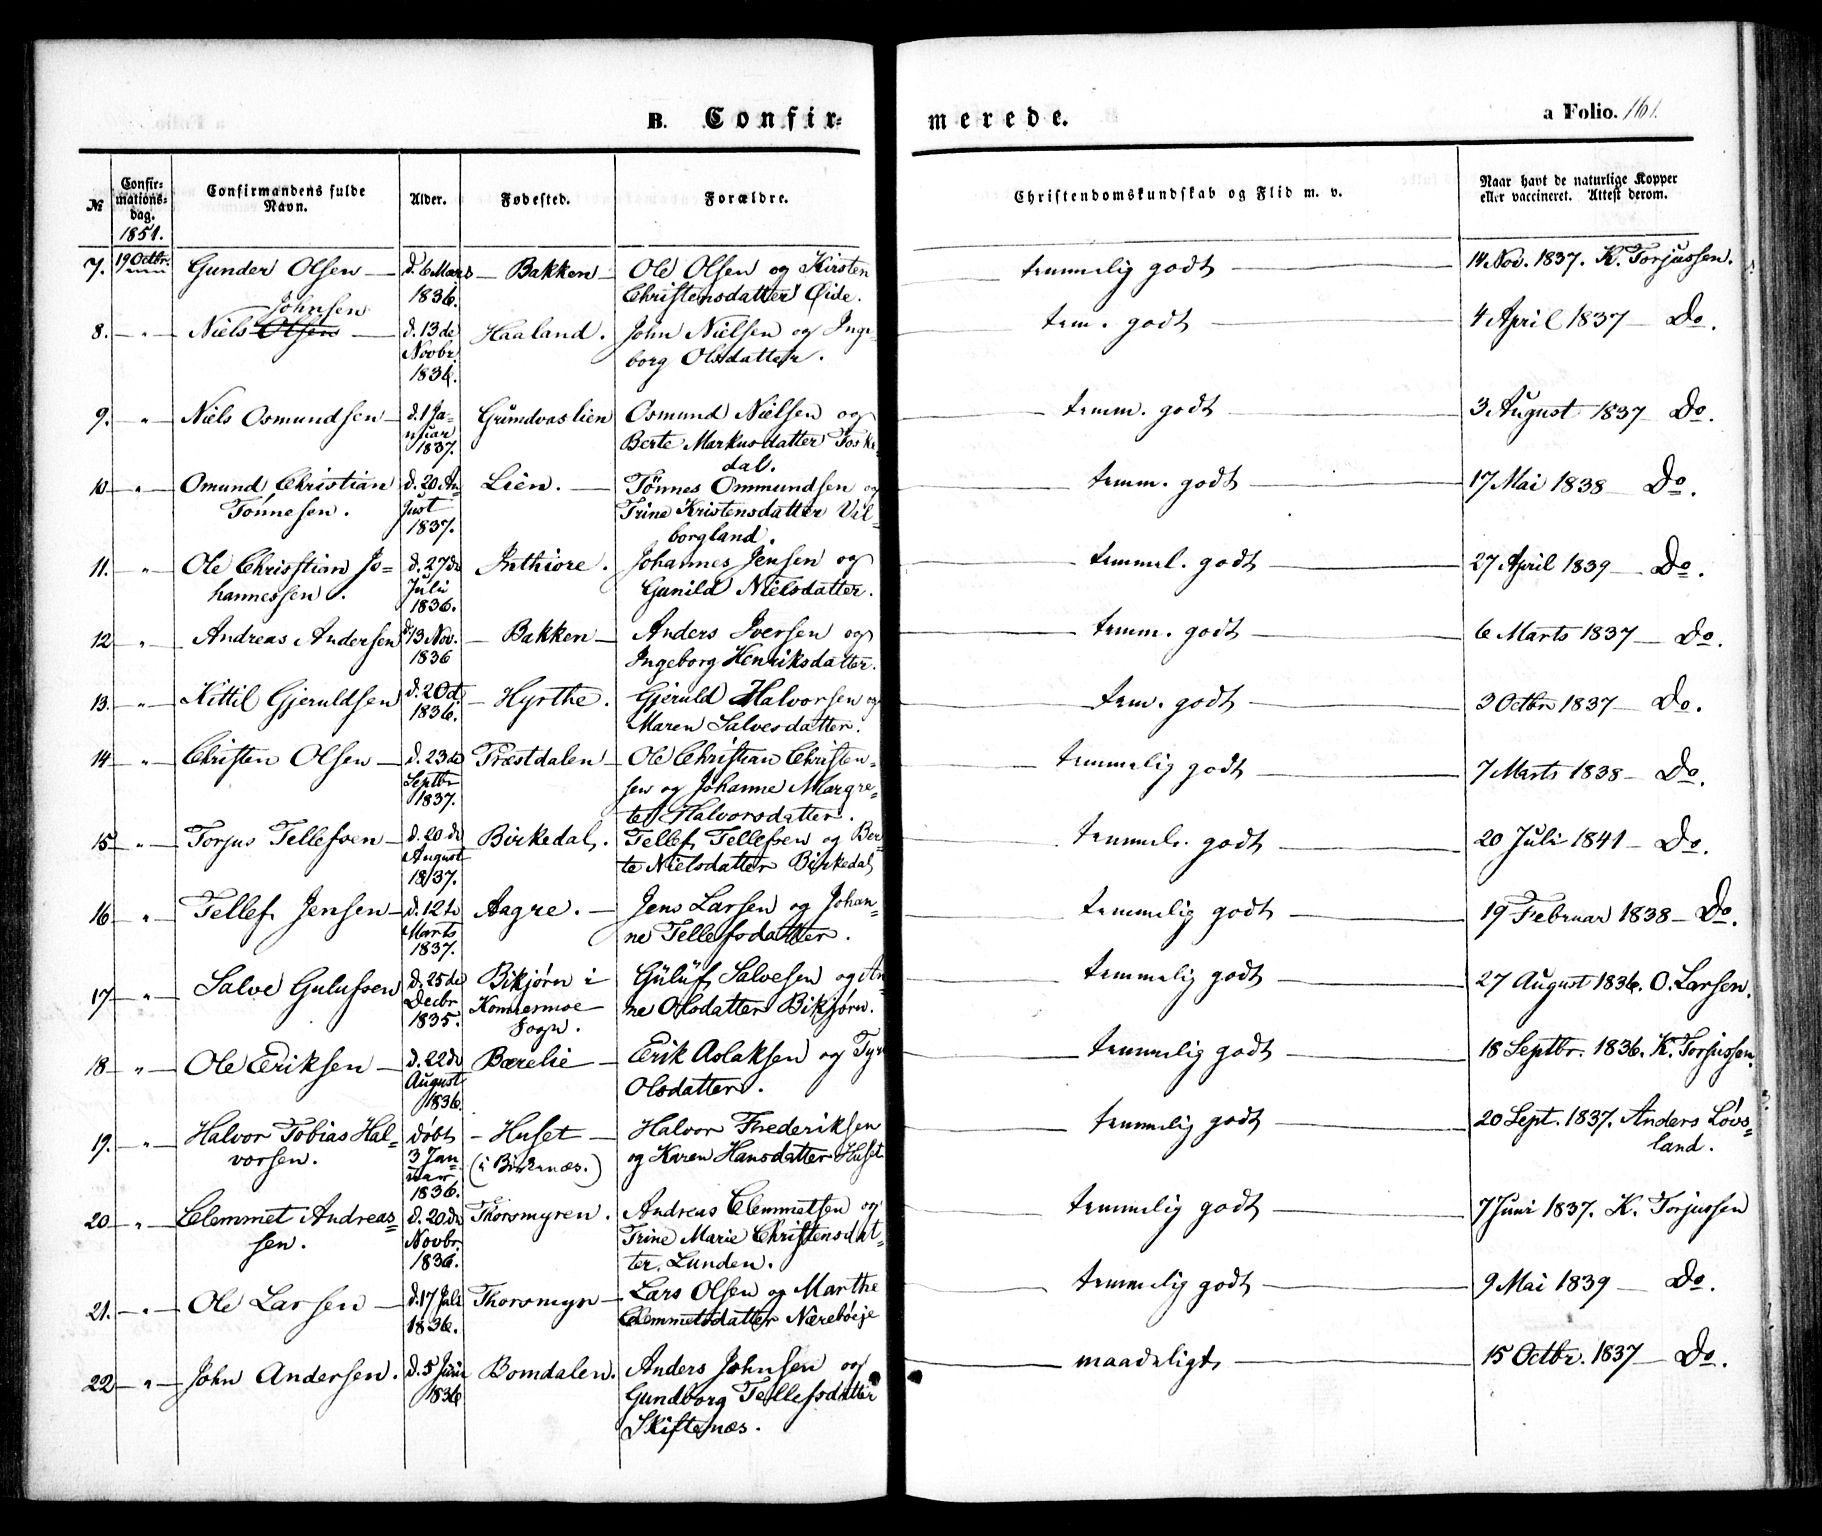 B. Confir=
merede.
a Folio. 161.
№
Confir=
mations=
dag.
1851.
Confirmandens fulde
Navn.
Alder.
Fødested.
Forældre.
Christendomskundskab og Flid m. v.
Naar havt de naturlige Kopper
eller vaccineret. Attest derom.
7. 19 Octbr. Gunder Olsen — d. 6 Marts — Bakken — Ole Olsen og Kirsten — temmelig godt — 14 Nov. 1837. K. Torjussen.
1836. Christensdatter Øide.
Johnsen
8. — " — Niels Olsen — d. 13de Haaland. John Nielsen og Inge= — tem. godt — 4 April 1837 — Do.
Novbr. borg Olsdatter.
1836.
9. " — Niels Osmundsen — d. 1 Ja= Grundvaslien Osmund Nielsen og — temm. godt — 3 August 1837 — Do.
nuar Berte Markusdatter Foske
1837. dal.
10 — " — Omund Christian d. 20 Au Lien. — Tönnes Ommundsen og — temm. godt — 17 Mai 1838 — Do.
Tönnesen. gust Trine Kristensdatter Vel=
1837. borgland.
11. " — Ole Christian Jo= d. 27de Inthiore. Johannes Jensen og — temmel. godt — 27 April 1839 — Do.
hannessen. Juli Gunild Nielsdatter.
1836.
12 " Andreas Andersen d. 13 Nov. — Bakken — Anders Iversen og — temm. godt — 6 Marts 1837 — Do.
1836 Ingeborg Henriksdatter.
13. " — Kittil Gjeruldsen d. 20 — Hyrthe. Gjeruld Halvorsen og — tem. godt — 3 Octbr 1837 — Do.
1836. Maren Salvesdatter.
14 — " — Christen Olsen — d. 23de Præstdalen — Ole Christian Christen= — temmelig godt — 7 Marts 1838 — Do.
Septbr sen og Johanne Margre=
1837. te Halvorsdatter.
15 — " — Torjus Tellefsen — d. 20de Birkedal. Tellef Tellefsen og Ber — temmel. godt — 20 Juli 1841 — Do.
August te Nielsdatter Birkedal
1837.
16 — " — Tellef Jensen — d. 12te Aagre. — Jens Larsen og Johan= — temmelig godt — 19 Februar 1838 — Do.
Marts ne Tellefsdatter.
1837.
17 — " — Salve Gulufsen d. 25de Bikjørn i Gülüf Salvesen og An — temmelig godt — 27 August 1836. O. Larsen.
Decbr ne Olsdatter Bikjørn.
1835. Sogn.
18 — " — Ole Eriksen — d. 22de Bærelie — Erik Aslaksen og — temmelig godt — 18 Septbr. 1836. K. Torjussen.
August Olsdatter.
1836.
19. " — Halvor Tobias Hal= døbt — Huset — Halvor Frederiksen — temmelig godt — 20 Sept. 1837. Anders Lövs=
vorsen. 3 Jan= (i Birkenæs.) og Karen Hansdatter Huset land.
uar
1836.
20 — " — Clemmet Andreas= d. 20de Thorsmyren. Andreas Clemmetsen og — temmelig godt — 7 Juni 1837. K. Torjussen
sen. Novbr. Trine Marie Christensdat=
1836. ter. Lunden.
21. — " — Ole Larsen — d. 17 Juli Thorsmyr — Lars Olsen og Marthe — temmelig godt — 9 Mai 1839 — Do.
1836. Clemmetsdatter Næreböeje
22 — " — John Andersen. d. 5 Juni Bomdalen. Anders Johnsen og — maadeligt, — 15 Octbr. 1837 — Do.
1836 Gundborg Tellefsdatter
Skiftenæs.